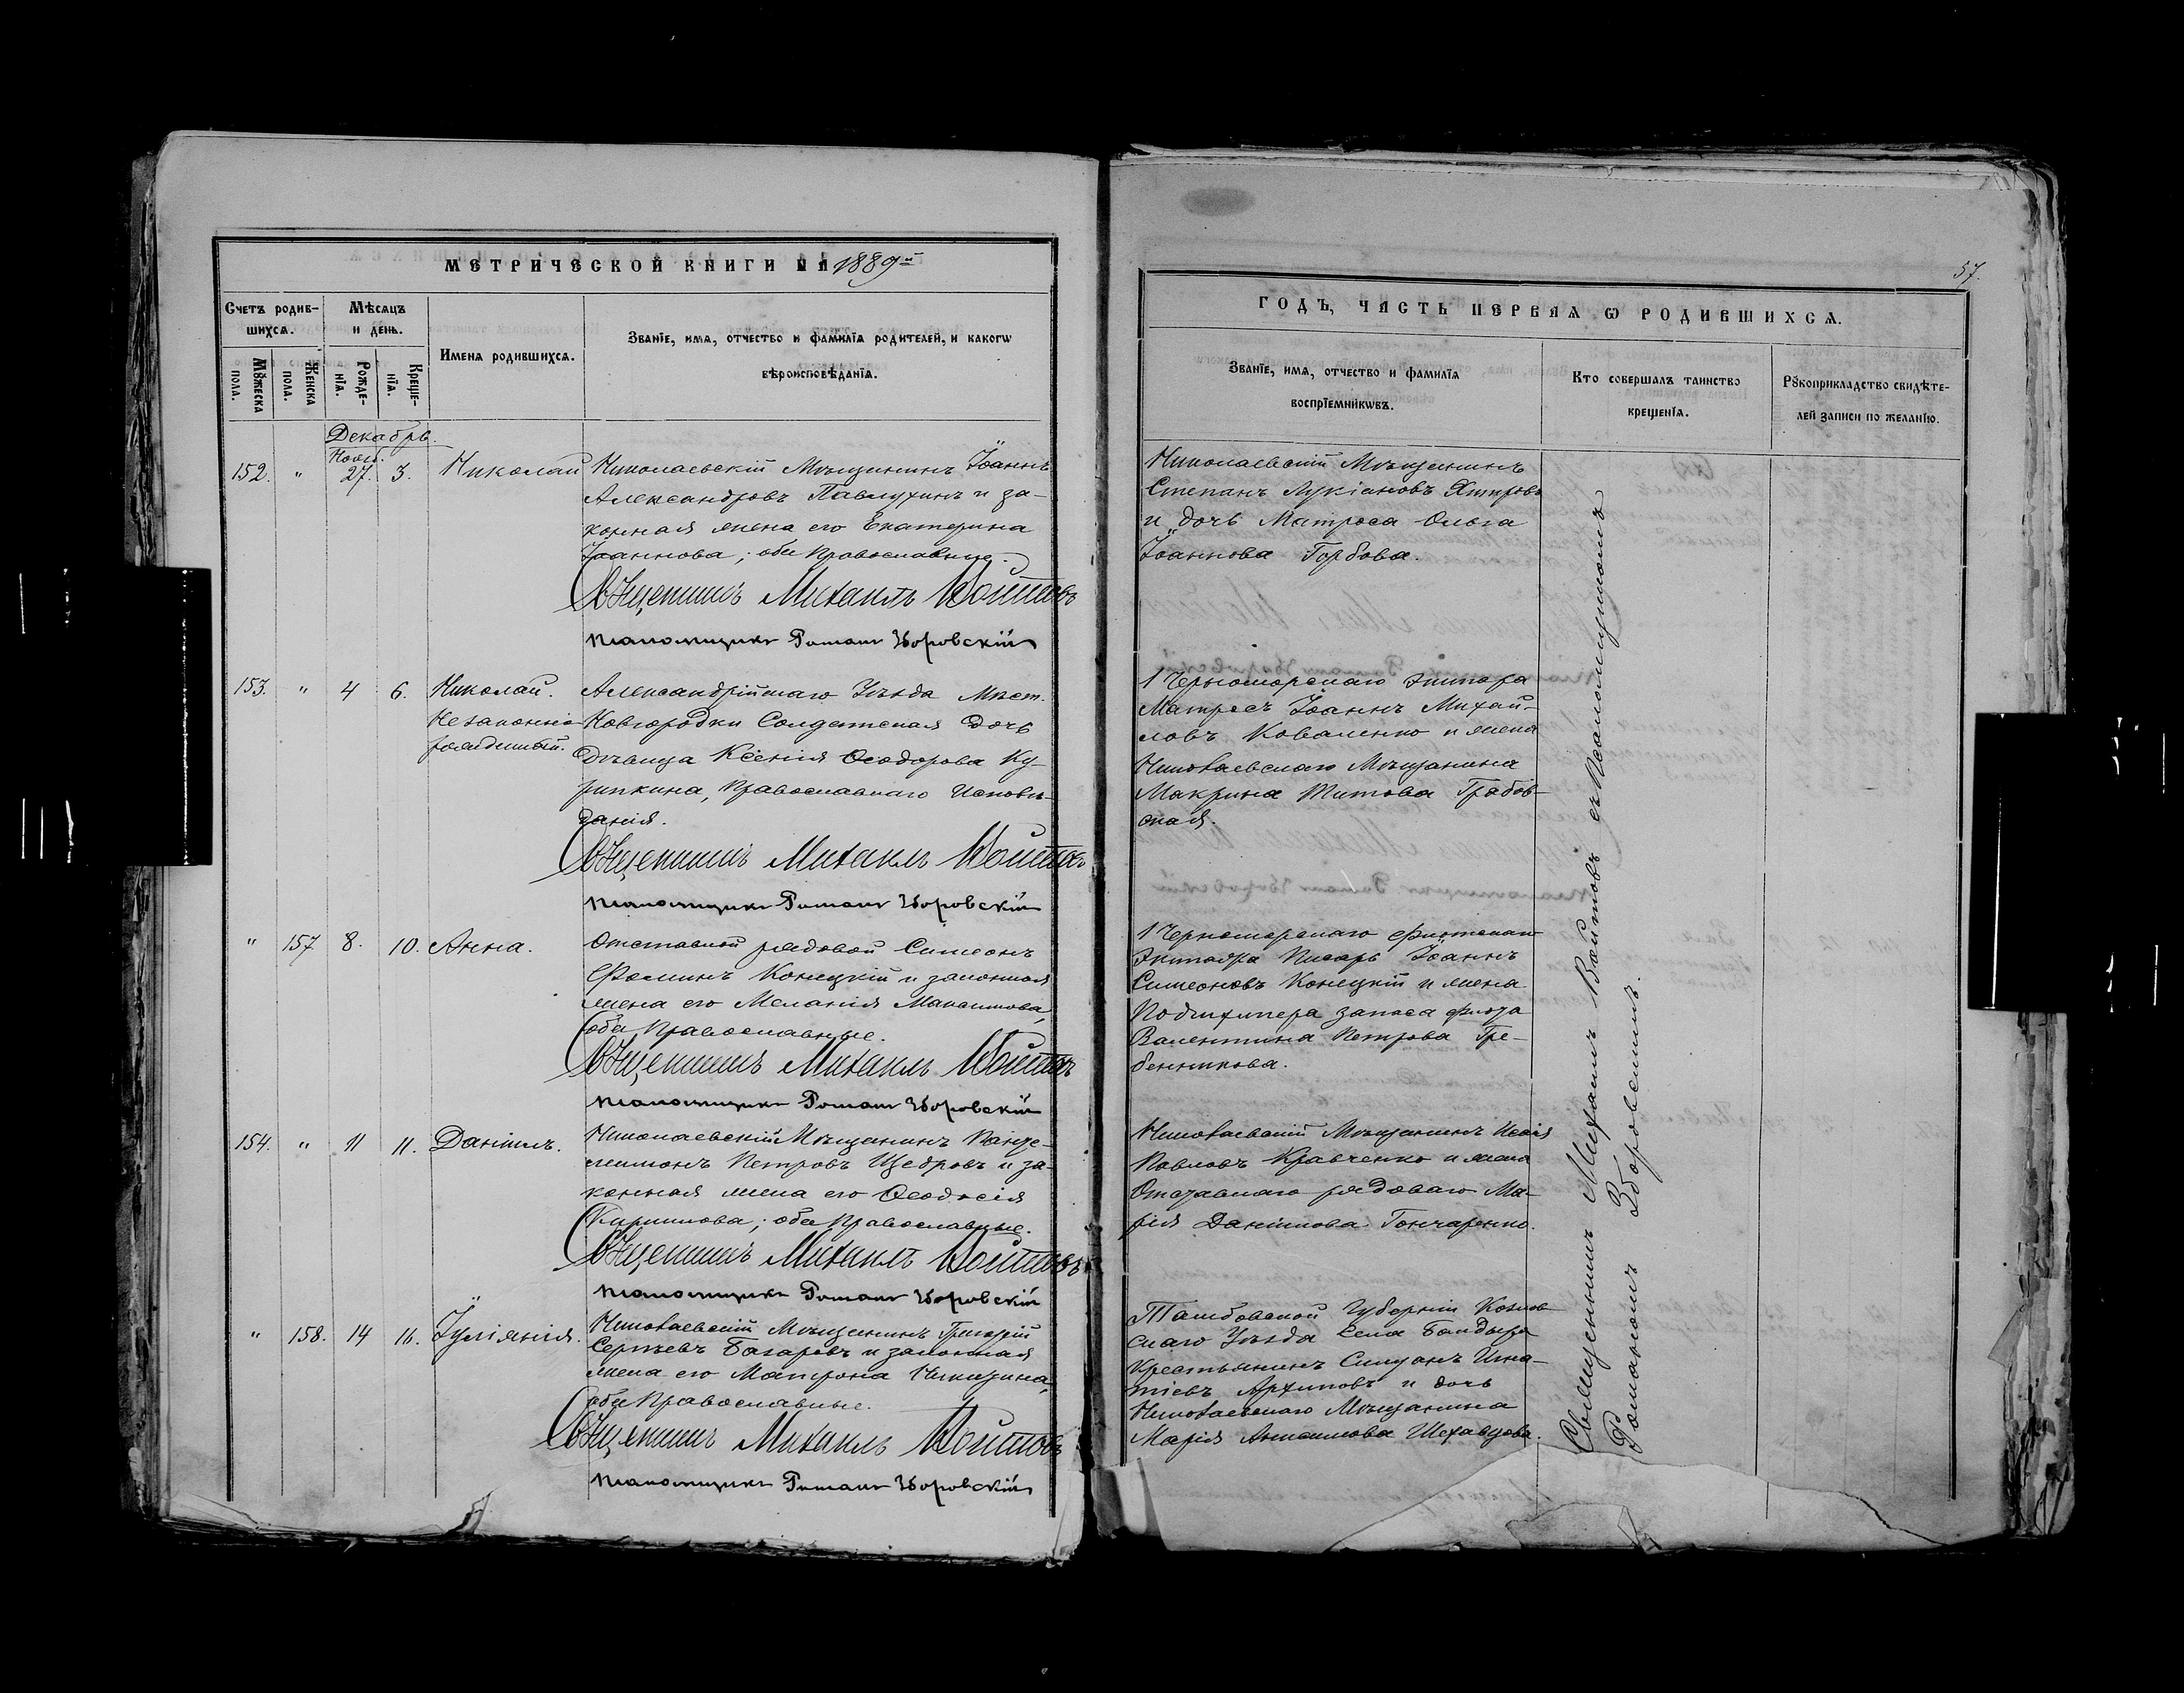 МЕТРИЧЕСКОЙ КНИГИ НА 1889й
Счетъ родив-
шихсѧ.
Мѣсѧцъ
и день.
Имена родившихсѧ.
Званїе, имѧ, отчество и фамилїѧ родителей, и какогѡ
вѣроисповѣданїѧ.
Мꙋжеска
пола.
Женска
пола.
Рожде-
нїѧ.
Креще-
нїѧ.
Декабрь.
152. " Нояб. 27. 3. Николай
Николаевскій Мѣщанинъ Іоаннъ
Александровъ Павлухинъ и за-
конная жена его Екатерина
Іоаннова; оба Православные.
Священникъ Михаилъ Войтовъ
Псаломщикъ Романъ Зборовскій
153. " 4 6. Николай.
Незаконно
рожденный.
Александрійскаго Уѣзда Мѣст.
Новгородки Солдатская Дочь
Дѣвица Ксенія Ѳеодорова Ку-
рипкина, Православнаго Исповѣ-
данія.
Священникъ Михаилъ Войтовъ
Псаломщикъ Романъ Зборовскій
" 157 8. 10. Анна.
Отставной рядовой Симеонъ
Фоминъ Конецкій и законная
жена его Меланія Максимова,
оба Православные.
Священникъ Михаилъ Войтовъ
Псаломщикъ Романъ Зборовскій
154. " 11 11. Даніилъ.
Николаевскій Мѣщанинъ Панте-
леимонъ Петровъ Щедровъ и за-
конная жена его Ѳеодосія
Кириллова; оба Православные.
Священникъ Михаилъ Войтовъ
Псаломщикъ Романъ Зборовскій
" 158. 14 16. Іуліанія.
Николаевскій Мѣщанинъ Григорій
Сергѣевъ Багаровъ и законная
жена его Матрона Никитина,
оба Православные.
Священникъ Михаилъ Войтовъ
Псаломщикъ Романъ Зборовскій
57.
ГОДЪ, ЧАСТЬ ПЕРВАѦ Ѡ РОДИВШИХСѦ.
Званїе, имѧ, отчество и фамилїѧ
воспрїемникѡвъ.
Кто совершалъ таинство
крещенїѧ.
Рꙋкоприкладство свидѣте-
лей записи по желанїю.
Николаевскій Мѣщанинъ
Степанъ Лукіановъ
и дочь Матроса Ольга
Іоаннова Горбова.
1 Черноморскаго экипажа
Матросъ Іоаннъ Михай-
ловъ Коваленко и жена
Николаевскаго Мѣщанина
Макрина Титова Грабов-
ская.
1 Черноморскаго Флотскаго
Экипажа Писарь Іоаннъ
Симеоновъ Конецкій и жена
Подшхипера запаса флота
Валентина Петрова Гре-
бенникова.
Николаевскій Мѣщанинъ Исаія
Павловъ Кравченко и жена
Отставнаго рядоваго Ма-
рія Даніилова Гончаренко.
Тамбовской Губерніи Козлов-
скаго Уѣзда села
Крестьянинъ Игна-
тіевъ Архиповъ и дочь
Николаевскаго Мѣщанина
Марія Шехавцова.
Священникъ Михаилъ Войтовъ съ Псаломщикомъ
Романомъ Зборовскимъ.